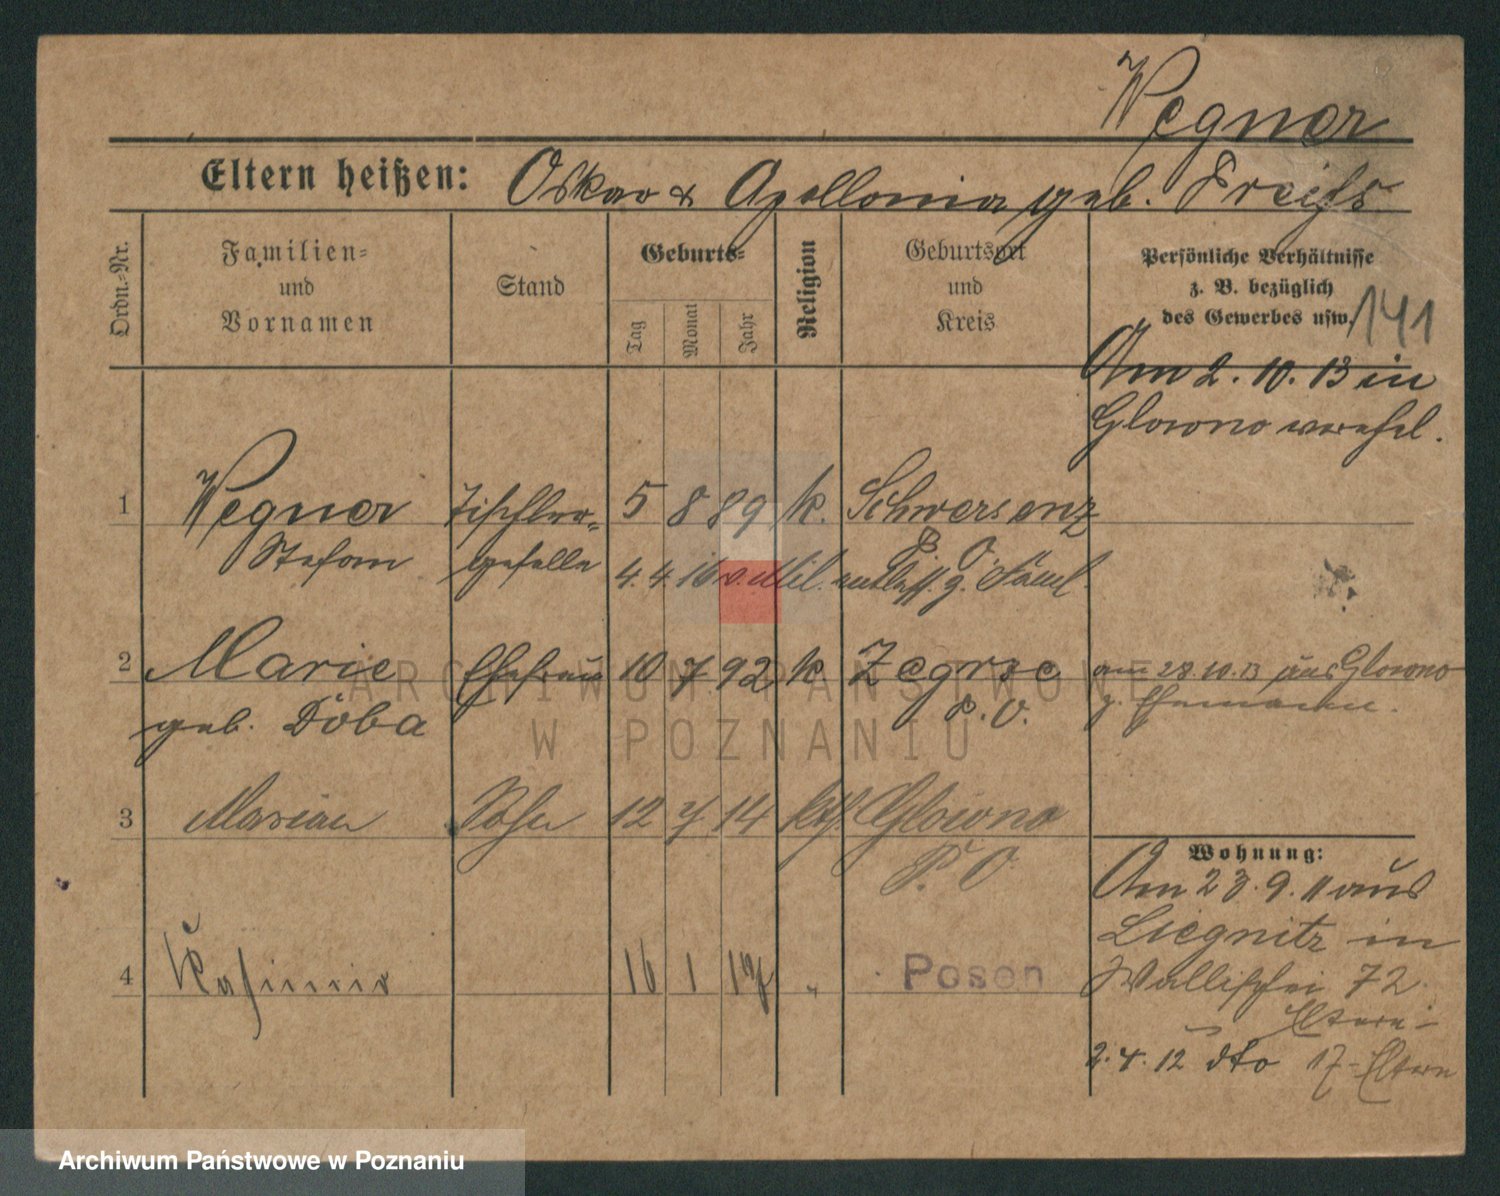 Wegner
Eltern heißen: Oskar & Apollonia geb. Preiß
Ordn.-Nr.
Familien-
und
Vornamen
Stand
Geburts-
Tag
Monat
Jahr
Religion
Geburtsort
und
Kreis
Persönliche Verhältnisse
z. B. bezüglich
des Gewerbes usw.
141
Am 2. 10. 13 in
Glowno verehel.
1 Wegner Tischler- 5 8 89 k. Schwersenz
Stefan geselle P. O.
4. 4. 16 v. Mil. entlass. z. Faml.
2 Marie Ehefrau 10 7 92 k Zegrze am 28.10.13 aus Glowno
geb. Doba P. O. z. Ehemann.
3 Marian Sohn 12 7 14 kth. Glowno
P. O.
Wohnung:
Am 23. 9. 11 aus
Liegnitz in
Wallischei 72
Eltern
4 Kasimir 16 1 17 " Posen
2. 4. 12 dto 17 - Eltern
ARCHIWUM PAŃSTWOWE
W POZNANIU
Archiwum Państwowe w Poznaniu